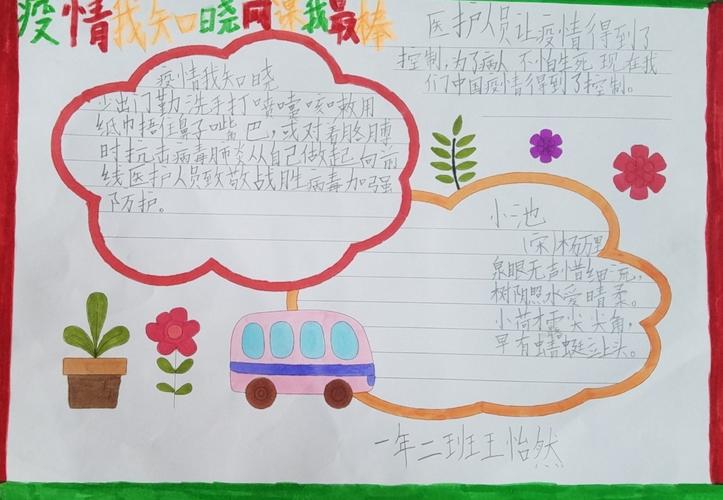 疫情我知晓网课我最棒
医护人员让疫情得到了
控制,为了病人不怕生死现在我
们中国疫情得到了控制。
疫情我知晓
少出门勤洗手打喷嚏咳嗽用
纸巾捂住鼻子嘴巴,或对着胳膊
时抗击病毒肺炎从自己做起向前
线医护人员致敬战胜病毒加强
防护。
小池
(宋)杨万里
泉眼无声惜细流,
树阴照水爱晴柔。
小荷才露尖尖角,
早有蜻蜓立上头。
一年二班王怡然